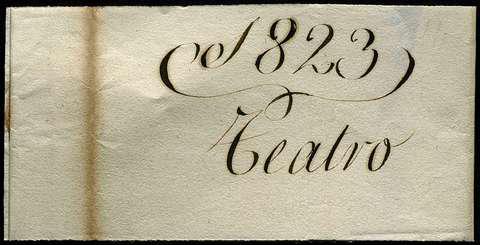 1823
Teatro